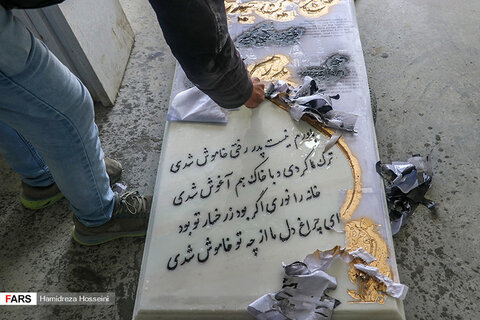 باورم نیست پدر رفتی خاموش شدی
ترک ما کردی و با خاک هم آغوش شدی
خانه را نوری اگر بود ز رخسار تو بود
ای چراغ دل ما از چه تو خاموش شدی
FARS Hamidreza Hosseini